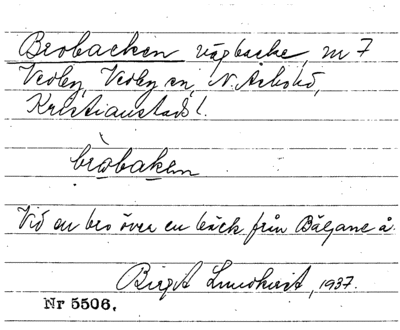 Brobacken vägbacke, m 7
Verby, Verby sn, N. Åsbo hd,
Kristianstads l.
brobaken
Vid en bro över en bäck från Bäljane å.
Birgit Lundkvist, 1937.
Nr 5506.